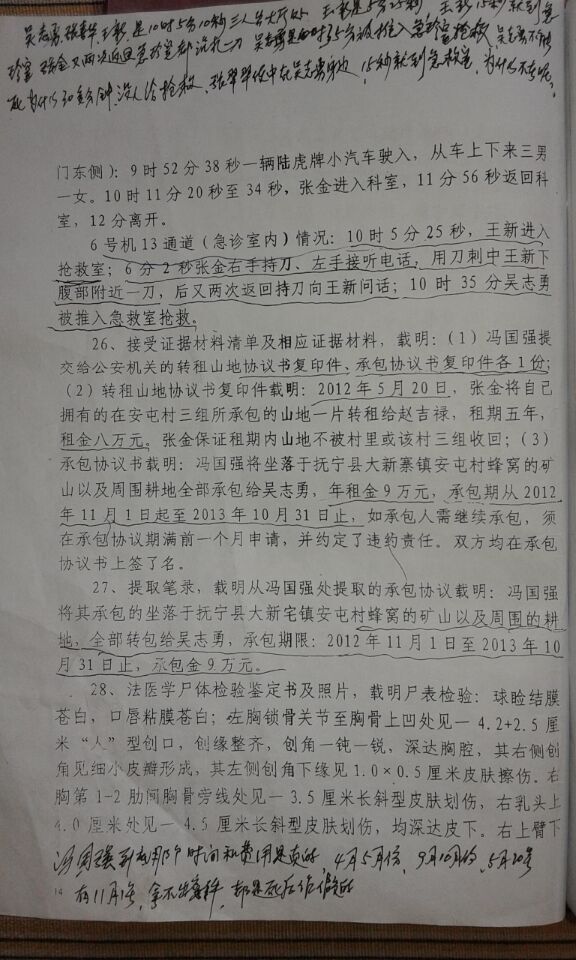 门东侧）：9时52分38秒一辆陆虎牌小汽车驶入，从车上下来三男
一女。10时11分20秒至34秒，张金进入科室，11分56秒返回科
室，12分离开。
6号机13通道（急诊室内）情况：10时5分25秒，王新进入
抢救室；6分2秒张金右手持刀、左手接听电话，用刀刺中王新下
腹部附近一刀，后又两次返回持刀向王新问话；10时35分吴志勇
被推入急救室抢救。
26、接受证据材料清单及相应证据材料，载明：（1）冯国强提
交给公安机关的转租山地协议书复印件、承包协议书复印件各1份；
（2）转租山地协议书复印件载明：2012年5月20日，张金将自己
拥有的在安屯村三组所承包的山地一片转租给赵吉禄，租期五年，
租金八万元。张金保证租期内山地不被村里或该村三组收回；（3）
承包协议书载明：冯国强将坐落于抚宁县大新寨镇安屯村蜂窝的矿
山以及周围耕地全部承包给吴志勇，年租金9万元，承包期从2012
年11月1日起至2013年10月31日止，如承包人需继续承包，须
在承包协议期满前一个月申请，并约定了违约责任。双方均在承包
协议书上签了名。
27、提取笔录，载明从冯国强处提取的承包协议载明：冯国强
将其承包的坐落于抚宁县大新宅镇安屯村蜂窝的矿山以及周围的耕
地，全部转包给吴志勇，承包期限：2012年11月1日至2013年10
月31日止，承包金9万元。
28、法医学尸体检验鉴定书及照片，载明尸表检验：球睑结膜
苍白，口唇粘膜苍白；左胸锁骨关节至胸骨上凹处见一4.2+2.5厘
米“人”型创口，创缘整齐，创角一钝一锐，深达胸腔，其右侧创
角见细小皮瓣形成，其左侧创角下缘见1.0×0.5厘米皮肤擦伤。右
胸第1-2肋间胸骨旁线处见一3.5厘米长斜型皮肤划伤，右乳头上
4.0厘米处见一4.5厘米长斜型皮肤划伤，均深达皮下。右上臂下
冯国强到 时间和费用是真的，4月5月份，9月10月份，5月20号
在11月1号，拿不出 都是死后作假的
14